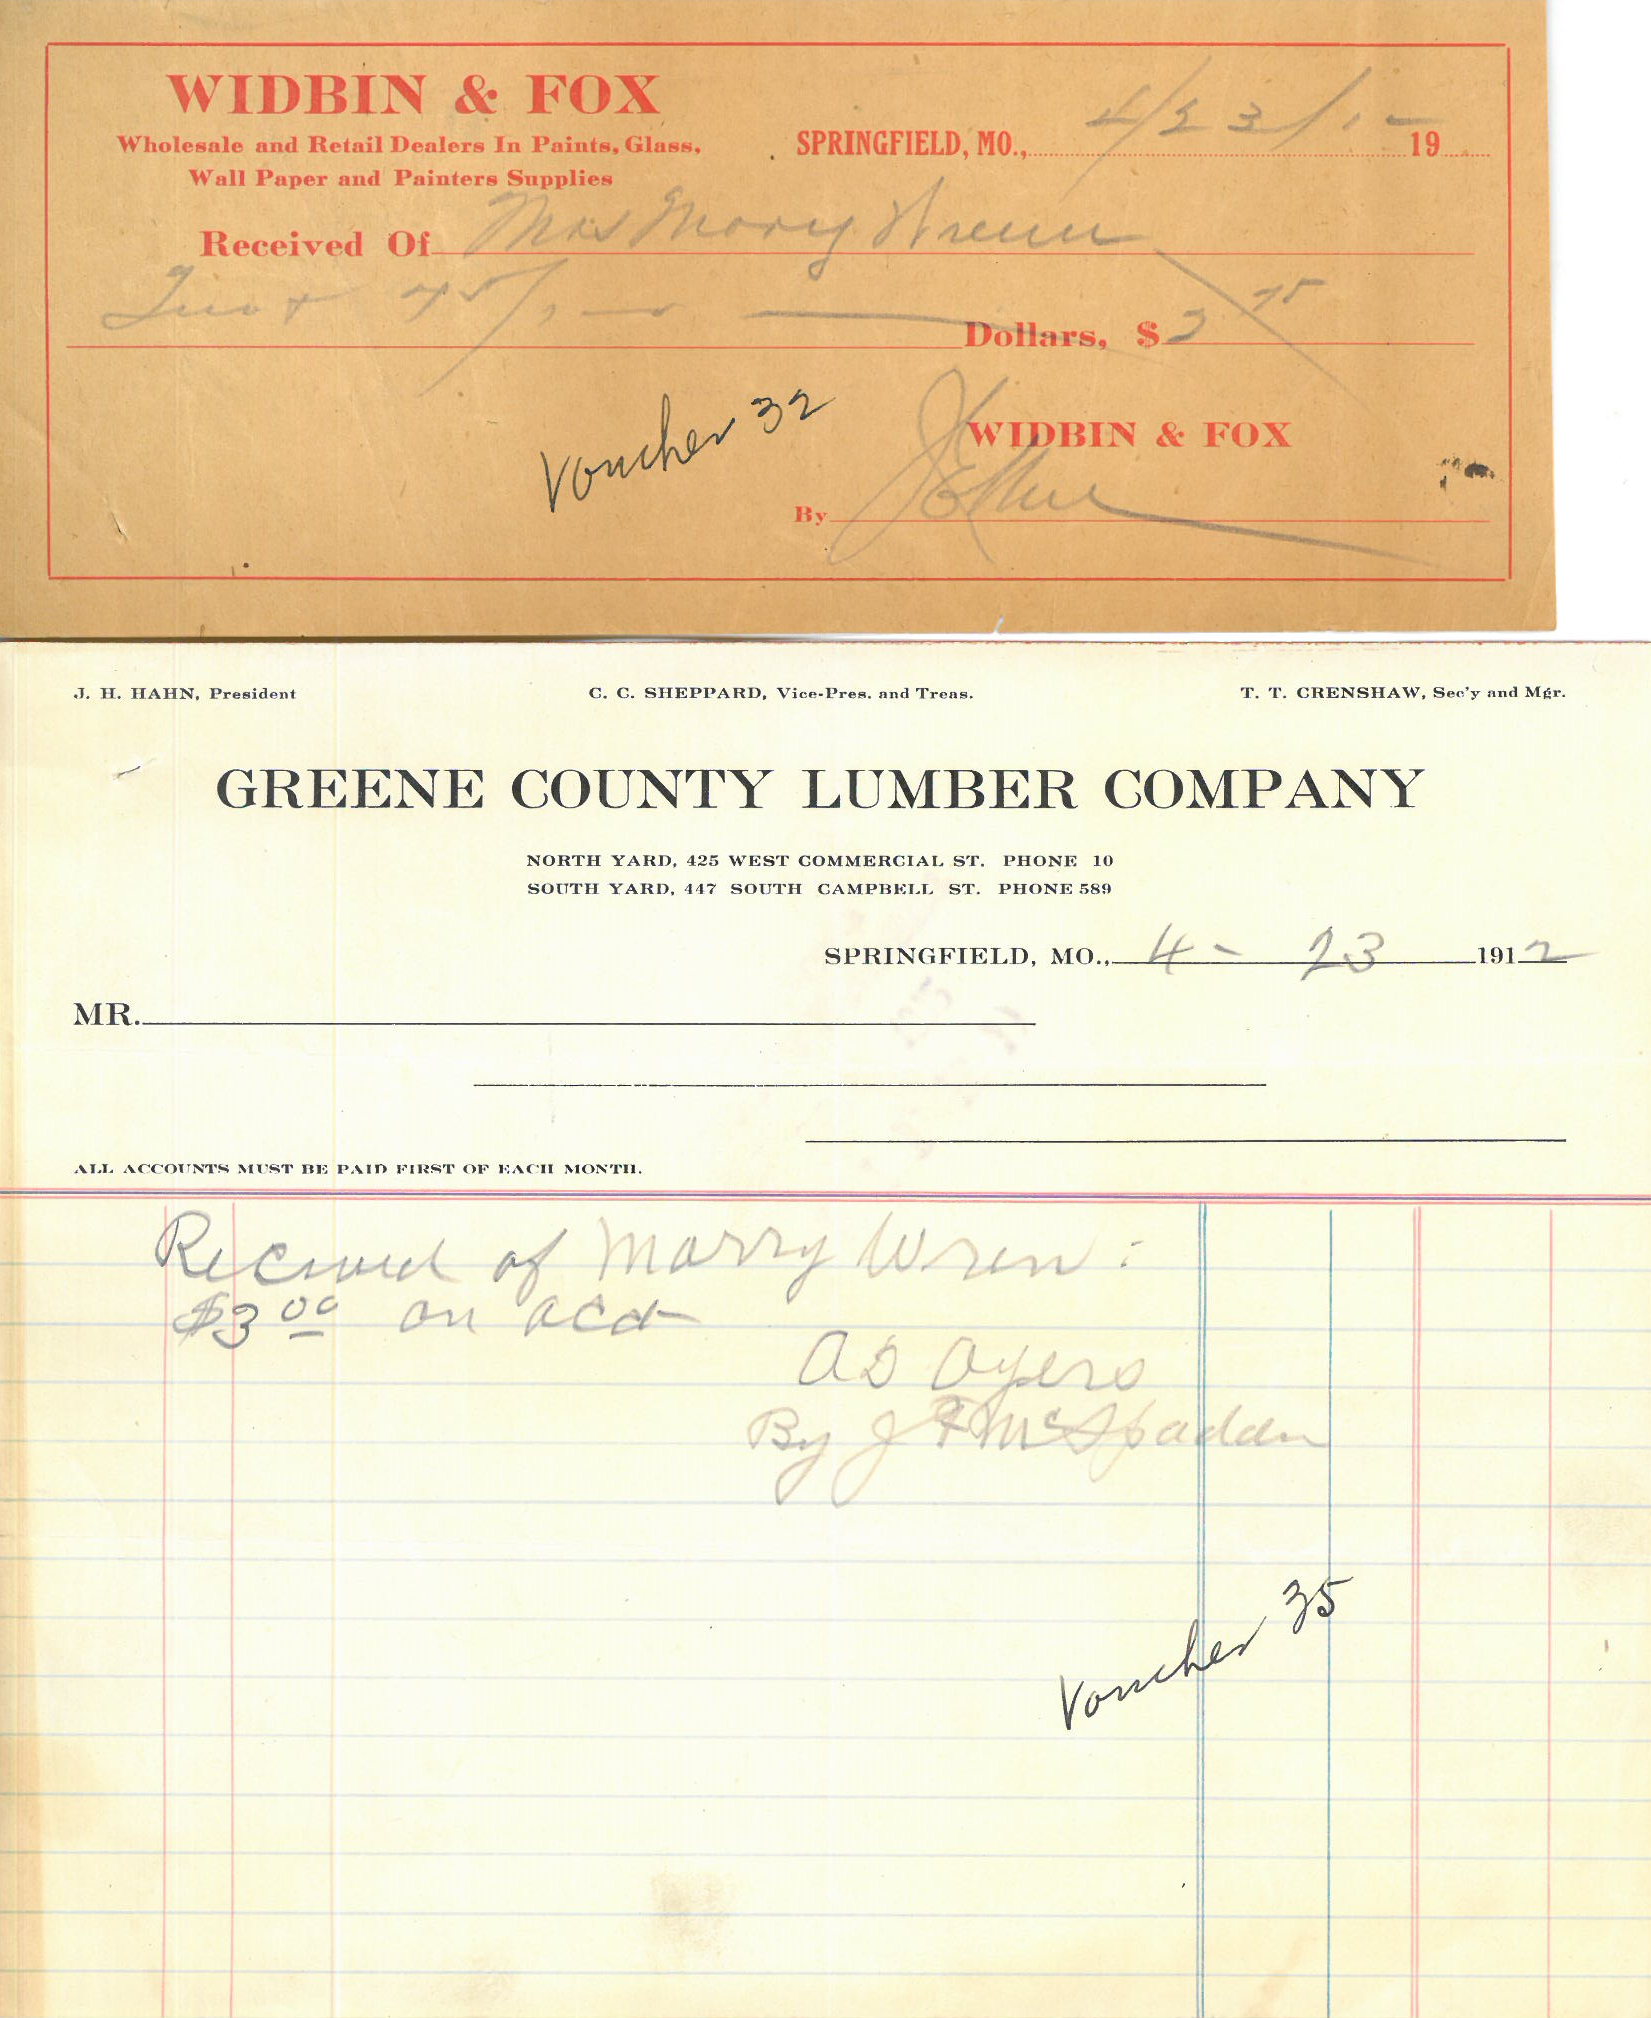 WIDBIN & FOX
Wholesale and Retail Dealers In Paints, Glass,
Wall Paper and Painters Supplies
SPRINGFIELD, MO., 4/23/1 19
Received Of Mrs Mary Wrenn
Two & 75/100 Dollars, $ 2 75
Voucher 32
WIDBIN & FOX
By
J. H. HAHN, President C. C. SHEPPARD, Vice-Pres. and Treas. T. T. CRENSHAW, Sec'y and Mgr.
GREENE COUNTY LUMBER COMPANY
NORTH YARD, 425 WEST COMMERCIAL ST. PHONE 10
SOUTH YARD, 447 SOUTH CAMPBELL ST. PHONE 589
SPRINGFIELD, MO., 4 - 23 1912
MR.
ALL ACCOUNTS MUST BE PAID FIRST OF EACH MONTH.
Received of Marry Wren :
$3 00 on acct
A D Ayers
By J F McSpadden
Voucher 35